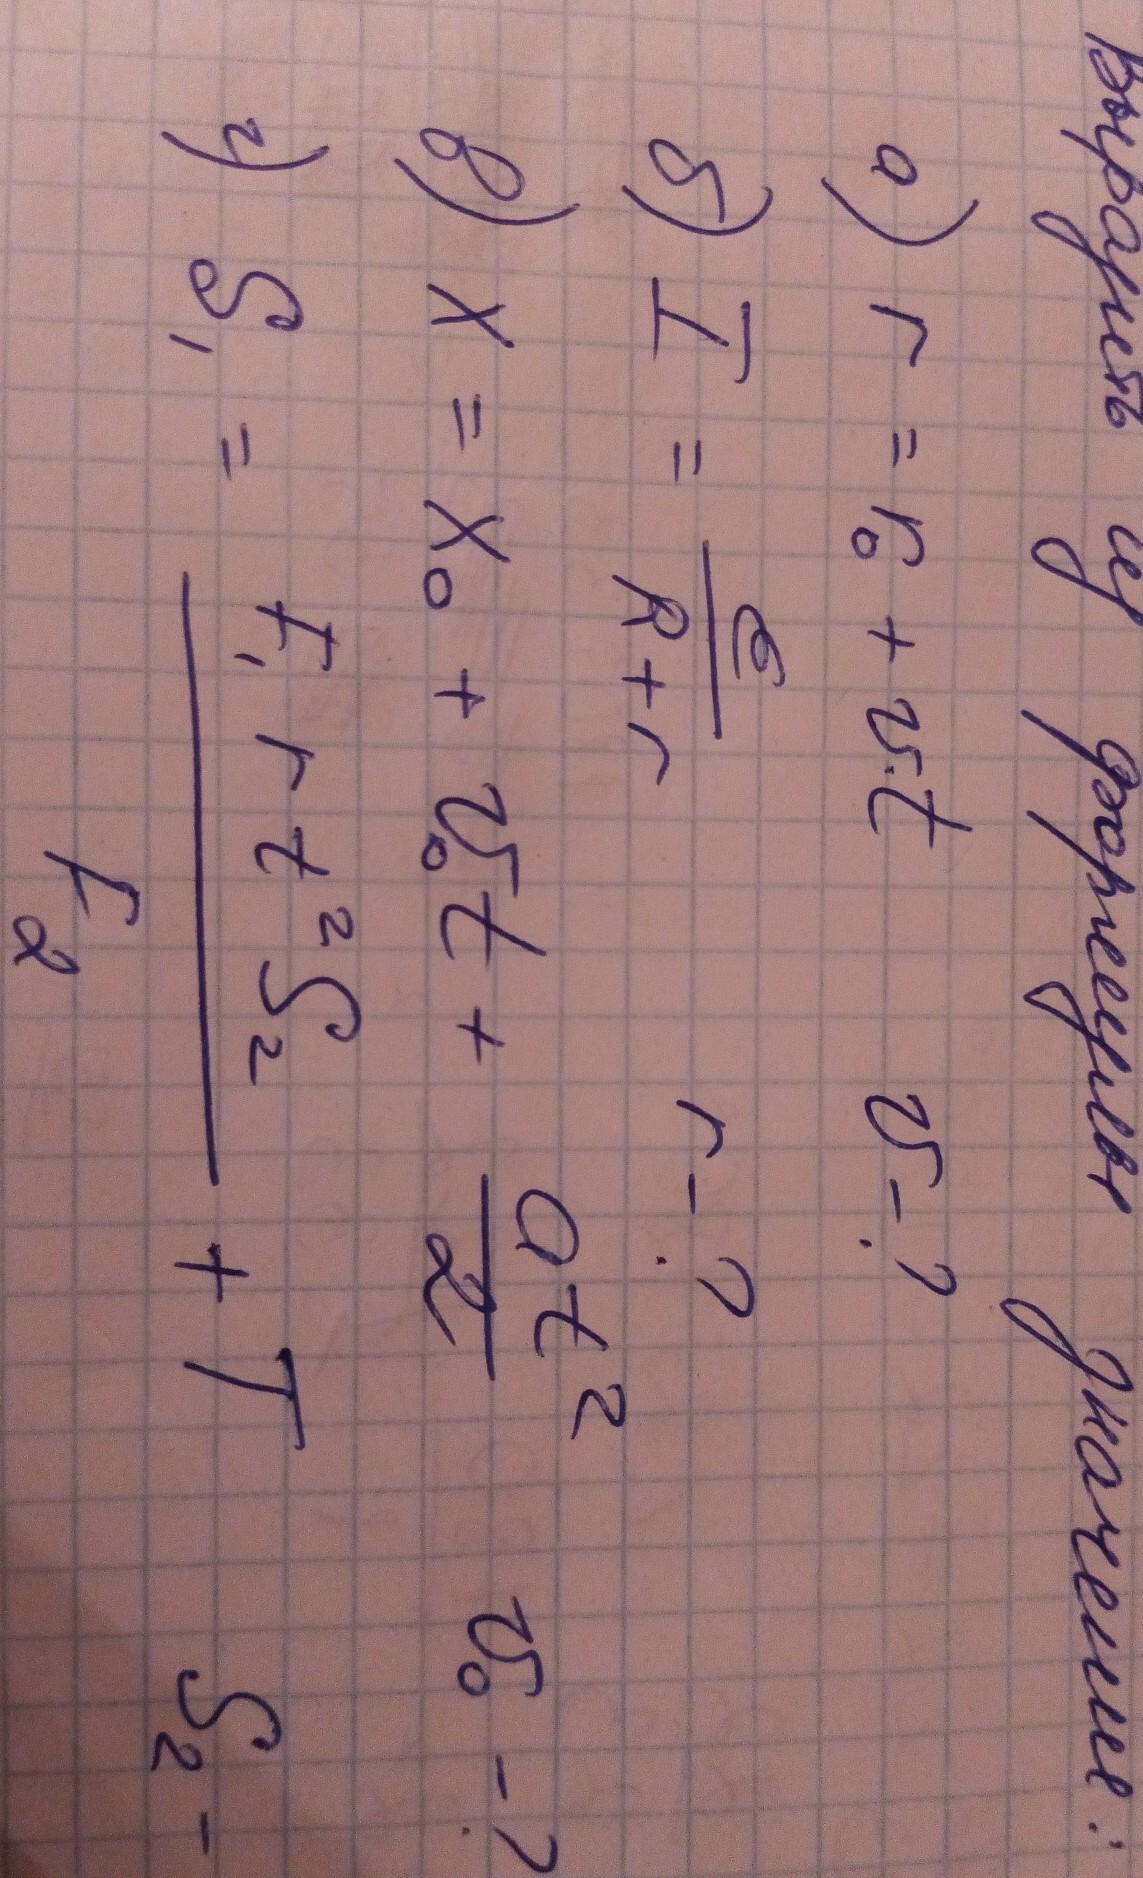 Выразить из формулы значение:
а) r = r₀ + υ·t υ - ?
б) I = ℰ / (R + r) r - ?
в) x = x₀ + υ₀t + at² / 2 υ₀ - ?
г) S₁ = F₁ r t² S₂ / F₂ + T S₂ -